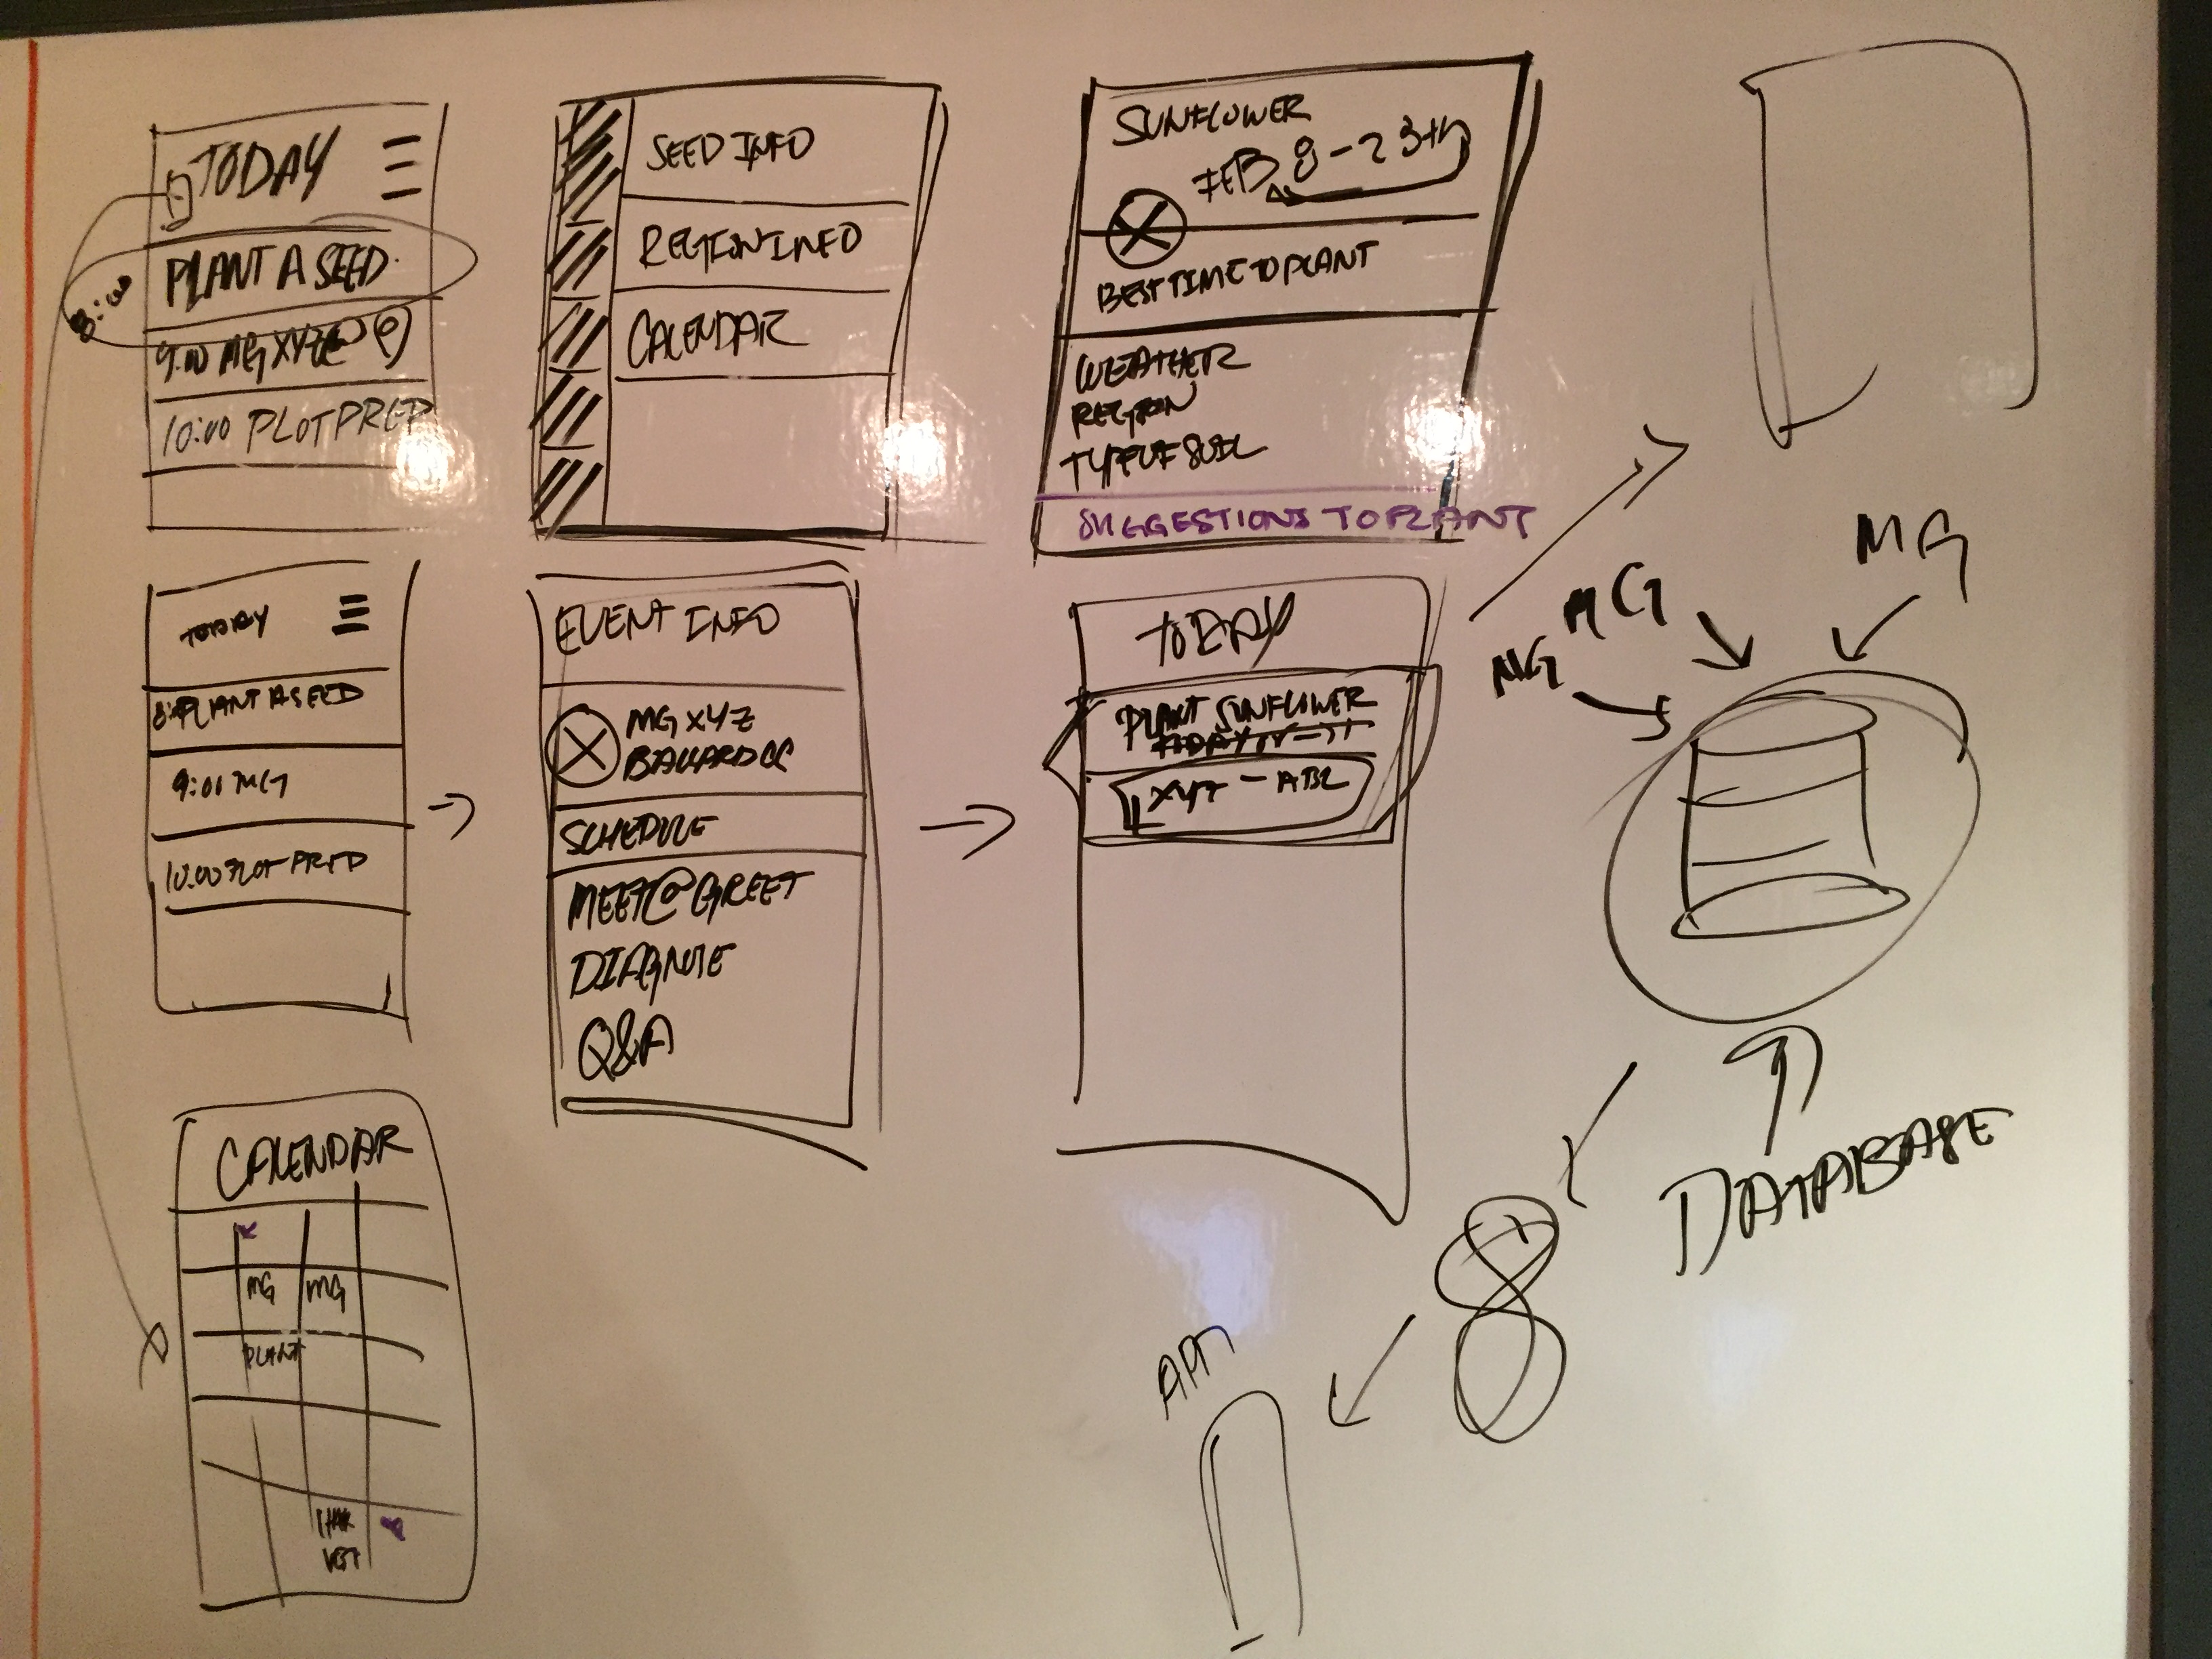 TODAY
PLANT A SEED
8:00
9:00 MG XYZ @
10:00 PLOT PREP
SEED INFO
REGION INFO
CALENDAR
SUNFLOWER
FEB 8-23th
BEST TIME TO PLANT
WEATHER
REGION
TYPE OF SOIL
SUGGESTIONS TO PLANT
TODAY
8: PLANT A SEED
9:00 MG
10:00 PLOT PREP
EVENT INFO
MG XYZ
BALLARD CC
SCHEDULE
MEET @ GREET
DIAGNOSE
Q&A
TODAY
PLANT SUNFLOWER
XYZ - ABC
MG
MG
MG
DATABASE
CALENDAR
MG MG
PLANT
HAR
VEST